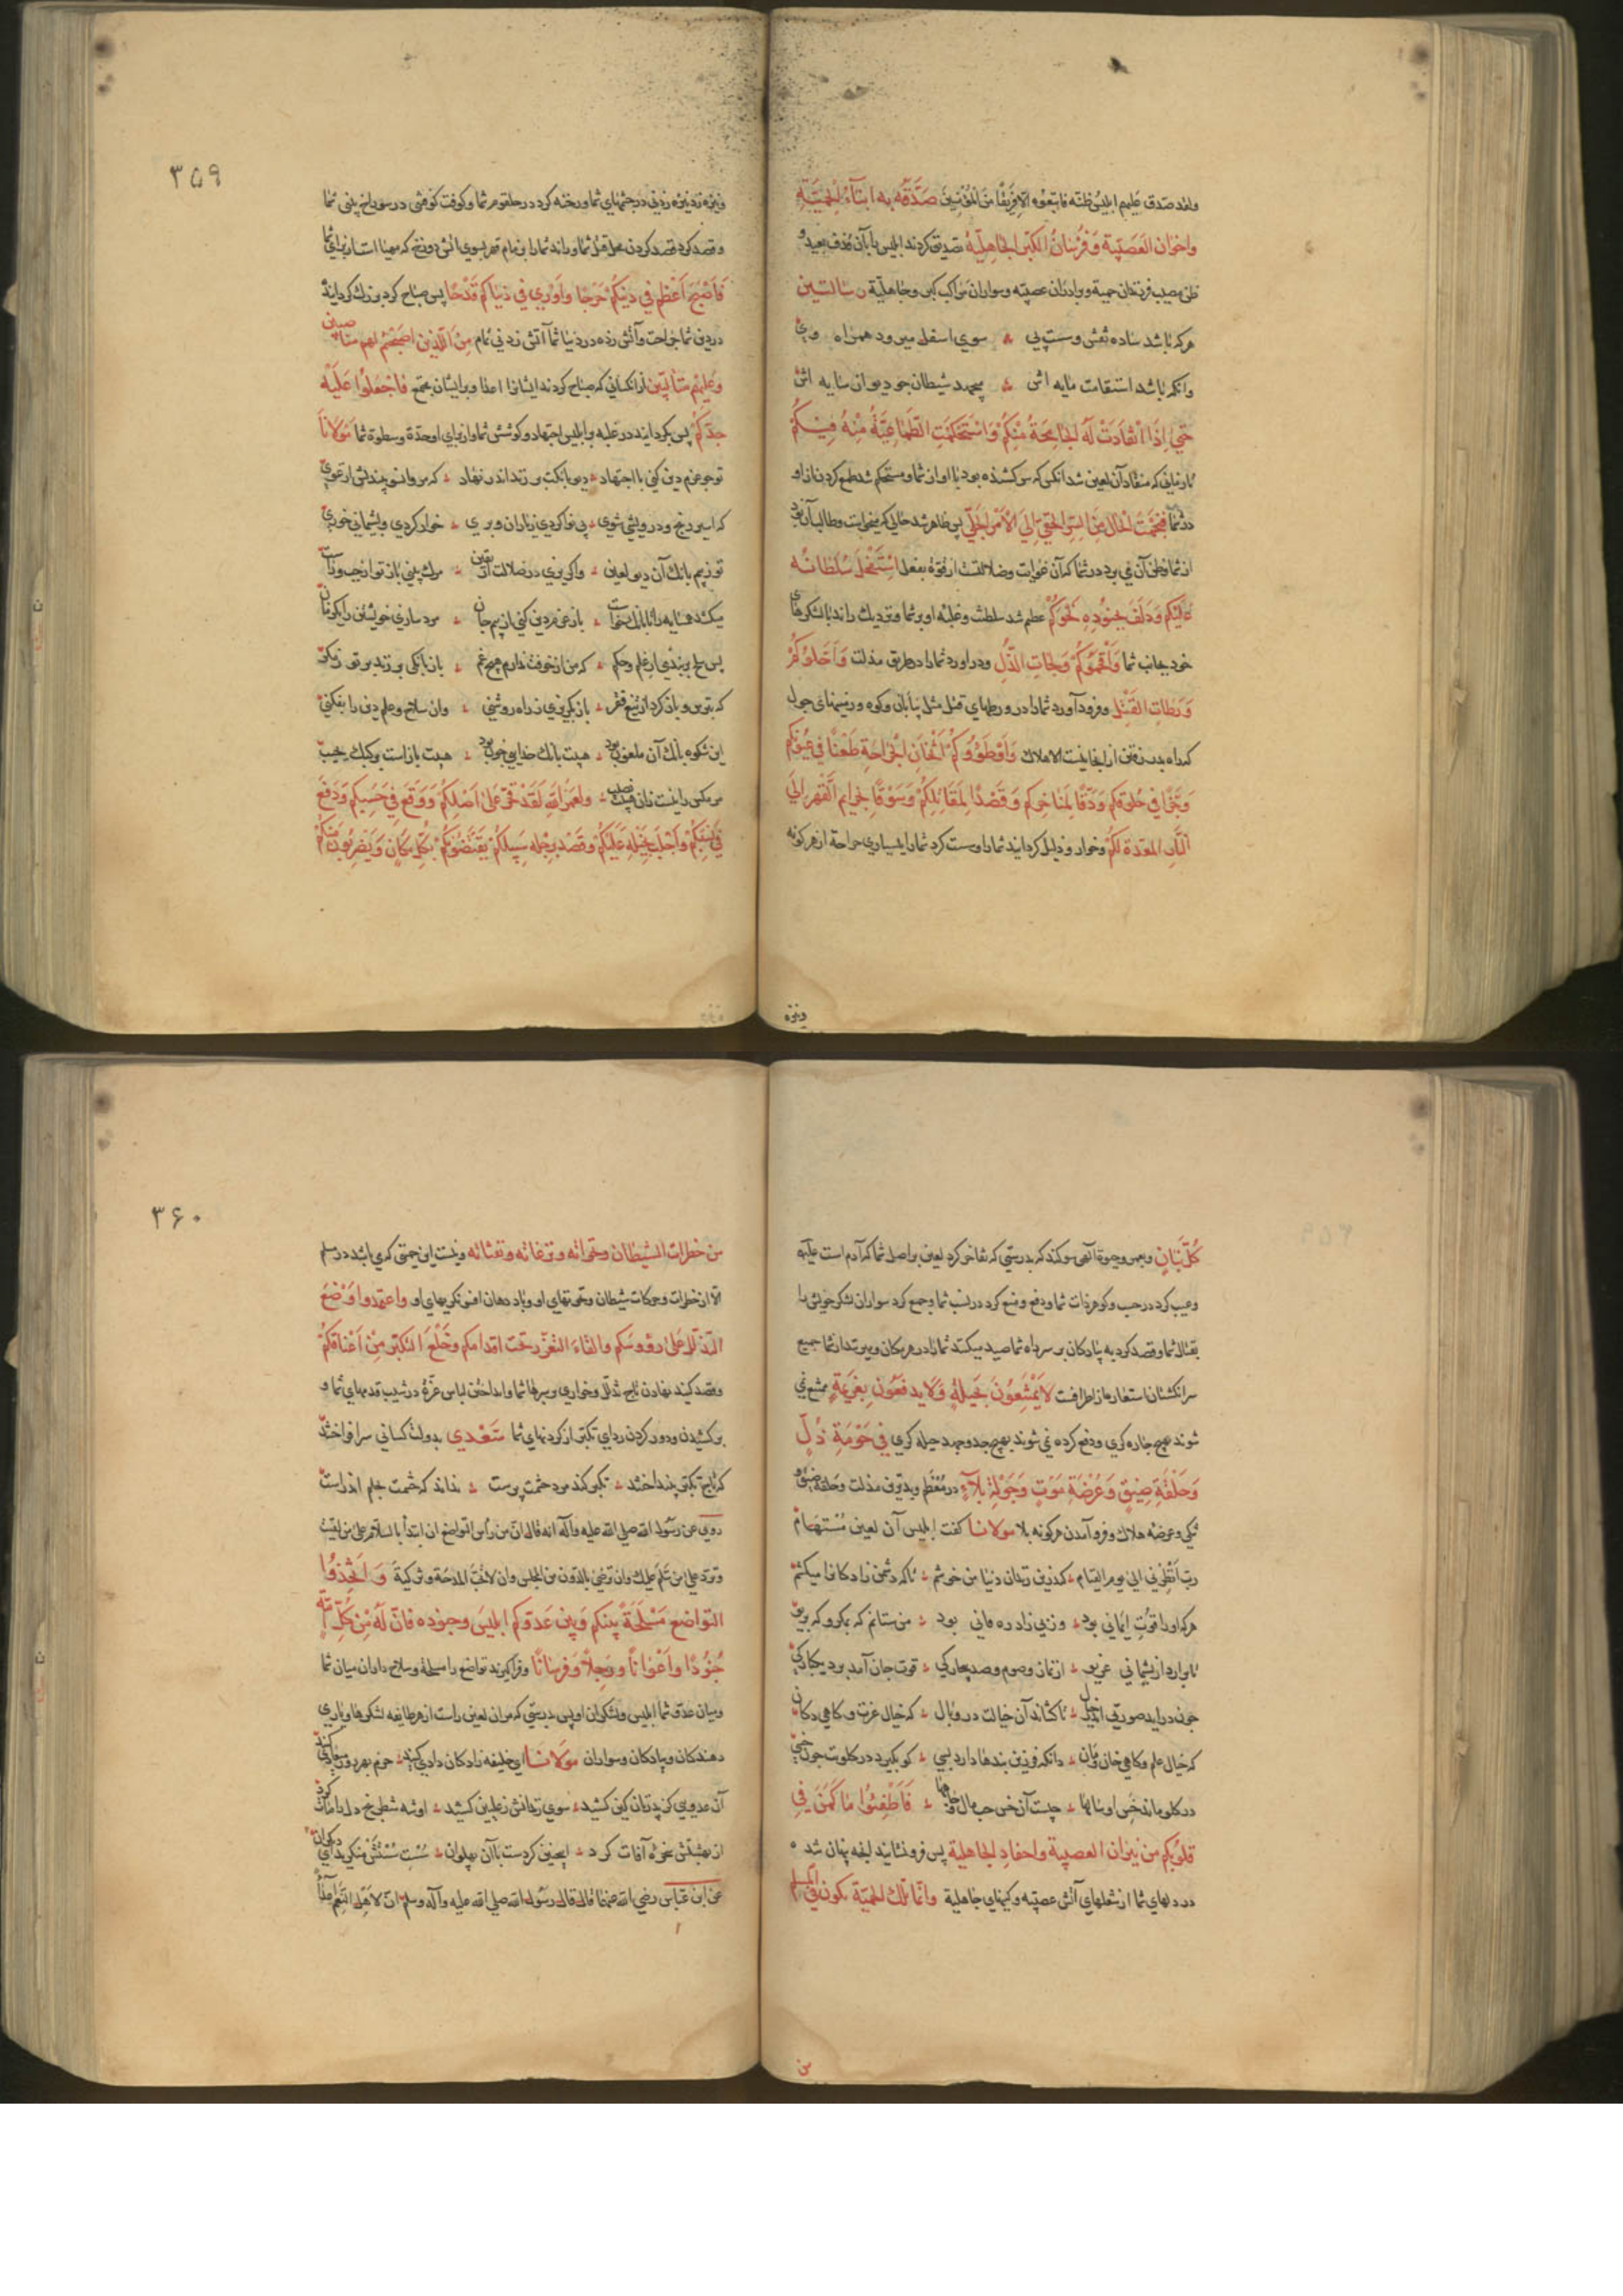 ولقد صدق علیهم ابلیس ظنه فاتبعوه الا فریقا من المؤمنین صَدَّقَهُ بِهِ ابناءُ الحَمِیَّةِ
واخوان العَصَبِیّة وَفُرْسَانُ الکِبْرِ والجاهلیّة تصدیق کردند ابلیس را بآن قذف بعید و
ظن مصیب فرزندان حمیة وبرادران عصبیه وسواران مراکب کبر وجاهلیة
هرکه باشد ساده نقش وسست پی سوی اسفل میرود همراه وی
وانکه باشد استقامت مایه اش شیطان جو دیوان سایه اش
حَتّی اِذَا انْقَادَتْ لَهُ الجَامِحَةُ مِنْکُمْ وَاسْتَحْکَمَتِ الطَّمَاعِیَّةُ مِنْهُ فِیْکُمْ
تا زمانی که منقاد آن لعین شد انکس که سرکشنده بود با او از شما ومستحکم شد طمع کردن از او
در شما فَنَجَمَتِ الْحَالُ مِنَ السِّرِّ الخَفِیِّ اِلَی الْاَمْرِ الجَلِیِّ پس ظاهر شد حالی که میخواست وطالب آن بود
از شما وظن آن می برد در شما که آن غوایت وضلالتست از قوة بفعل اسْتَفْحَلَ سُلْطَانُهُ
عَلَیْکُمْ وَدَلَفَ بِجُنُودِهِ نَحْوَکُمْ عظیم شد سلطنت وغلبه او بر شما ونزدیک راند با لشکرهای
خود بجانب شما وَاَقْحَمُوکُمْ وَلَجَاتِ الذُّلِّ ودر اورد شما را در طریق مذلت وَاَحَلُّوکُمْ
وَرَطَاتِ القَتْلِ وفرود آورد شما را در ورطهای قتل مثل بیابان وکوه وزمینهای
که راه بدر نرفتن از انجا نیست الا هلاک وَاَوْطَؤُوکُمْ اثْخَانَ الجِرَاحَةِ طَعْنًا فِی عُیُونِکُمْ
وَحَزًّا فِی حُلُوقِکُمْ وَدَقًّا لِمَنَاخِرِکُمْ وَقَصْدًا لِمَقَاتِلِکُمْ وَسَوْقًا بِخَزَایِمِ الْقَهْرِ اِلَی
النَّارِ المُعَدَّةِ لَکُمْ وخوار وذلیل کردانید شما را وسست کرد شما را بسیاری جراحة از هر کونه
ونیزه
۳۵۹
ونیزه زد نیزه زدنی در چشمهای شما ورخنه کرد در حلقوم شما وکوفت کوفتنی در سوراخ بینی شما
وقصد کرد قصد کردن محل قتل شما وراند شما را بزمام قهر بسوی اتش دوزخ که مهیا است از برای شما
فَاَصْبَحَ اَعْظَمَ فِی دِینِکُمْ حَرْجًا وَاَوْرَی فِی دُنْیَاکُمْ قَدْحًا پس صباح کرد بزرک کرداینده
در دین شما جراحت وآتش زده در دنیا شما آتش زدنی تمام مِنَ الَّذِینَ اصبَحْتُم لهم مناصبین
وَعَلَیْهِم مُتَأَلِّبِین از انکسانی که صباح کردند ایشانرا اعدا وبر ایشان مجتمع فَاجْعَلُوا عَلَیْهِ
حِدَّکُمْ پس بکردانید در غلبه بر ابلیس اجتهاد وکوشش شما واز برای او حدّة وسطوة شما مَوْلَانَا
تو چو عزم دین کنی با اجتهاد دیو بانکت بر زند اندر نهاد که مرو انسو بیندیش ای غوی
که اسیر رنج ودرویشی شوی بی نوا کردی زیاران وبری خوار کردی وپشیمانی خوری
تو ز بیم بانک آن دیو لعین واکریزی در ضلالت از یقین مرک بینی باز تو از چپ وراست
میکشد همسایه را تا بانک خاست باز عزم دین کنی از بیم جان مرد سازی خویشتن را یکزمان
پس سلح بربندی از علم وحکم که من از خوفت ندارم هیچ غم باز بانکی بر زند بر تو ز مکر
که بترس وباز کرد از تیغ فقر باز بکریزی ز راه روشنی وان سلاح وعلم دین را بفکنی
این شکوه بانک آن ملعون بود هیبت بانک خدایی چون بود هیبت باز است بر کبک نجیب
مر مکس را نیست زان هیبت نصیب ولعَمْرُ اللّه لَقَدْ فَخَرَ عَلیٰ اَصْلِکُمْ وَوَقَعَ فِی حَسَبِکُمْ وَدَفَعَ
فِی نَسَبِکُمْ وَاَجْلَبَ بِخَیْلِهِ عَلَیْکُمْ وَقَصَدَ بِرَجْلِهِ سَبِیلَکُمْ یَقْتَنِصُونَکُمْ بِکُلِّ مَکَانٍ وَیَضْرِبُونَ مِنْکُمْ
کُلَّ بَنَانٍ وبعمر وحیوة الهی سوکند که بدرستی که تفاخر کرد لعین بر اصل شما که آدم است علیه
وعیب کرد در حسب وکوهر ذات شما ودفع ومنع کرد در نسب شما وجمع کرد سواران لشکر خویش را
بقتال شما وقصد کرد به پیادکان بر سر راه شما صید میکنند شما را در هر مکان ومیزنند از شما جمیع
سر انکشتان لا یَمْتَنِعُونَ بِحِیلَةٍ وَلَا یَدفَعُونَ بِعَزِیمَةٍ ممتنع نمی
شوند بهیچ چاره کری ودفع کرده نمی شوند بهیچ جد وجهد حیله کری فِی حَوْمَةِ ذُلٍّ
وَحَلْقَةِ ضِیْقٍ وَعَرْصَةِ مَوْتٍ وَجَوْلَةِ بَلَآءٍ در معظم مذلت وحلقه ضیق و
تنکی وعرصه هلاک وفرو آمدن هرکونه بلا مولانا کفت ابلیس آن لعین مستهام
رب انظرنی الی یوم القیام کندرین زندان دنیا من خوشم تا که دشمن زادکانرا میکشم
هرکه او را قوت ایمانی بود وز پی زاد ره مانی بود من ستانم که بمکر وکه بریو
تا برارد از پشیمانی غریو از نماز وصوم وصد بیچارکی قوت جان آمد برد یکبارکی
چون دراید صورتی اندر خیال تا کشاند آن خیالت در وبال که خیال غزت وکاهی دکان
که خیال علم وکاهی خان ومان دانکه فزون بندها دارد بسی کو بکیرد در کلوت چون خسی
در کلو ماند خس او سالها چیست آن خس حب مال جاها فَاَطْفِئُوا مَا کَمَنَ فِی
قلوبکم من نیران العصبیة واحقاد الجاهلیة پس فرو نشانید انچه پنهان شد
در دلهای شما از شعلهای آتش عصبیه وکینهای جاهلیة وانّما تلک الحَمِیّة تکون فی المسلم
من
۳۶۰
من خطرات الشیطان ونخواته ونزغاته ونفثاته ونیست این حمیتی که می باشد در مسلم
الا از خطرات وحرکات شیطان ونخوتهای او وباد دهان افسونکریهای او واعتمدوا وَضْعَ
التذلّل علیٰ رؤوسکم والقاءَ التعزّز تحت اقدامکم وخَلْعَ التکبّر مِنْ اَعْنَاقِکُمْ
وقصد کنید نهادن تاج تذلل وخواری بر سرها شما وانداختن لباس عزّة در شیب قدمهای شما و
برکشیدن ودور کردن ردای تکبر از کردنهای شما سَعْدی بدولت کسانی سر افراختند
که تاج تکبر بینداختند تکبر کند مرد حشمت پرست نداند که حشمت بحلم اندرست
روی عن رسول الله صلی الله علیه وآله انه قال ان من رأس التواضع ان ابتدأ بالسلام علی من لقیت
وترد علی من سلم علیک وان ترضی بالدون من المجلس وان لا تحب المدحة وتزکیة وَاتَّخِذُوا
التواضع مَسْلَحَةً بینکم وَبَیْنَ عَدوّکم ابلیسَ وجنوده فَانَّ لَهُ مِنْ کُلِّ اُمَّةٍ
جُنُودًا وَاَعْوَانًا ورَجِلاً وَفُرسَانًا وفراکیرید تواضع را مسلحة وسلاح داران میان شما
ومیان عدوّ شما ابلیس ولشکر ان او پس بدرستی که مران لعین راست از هر طایفه لشکرها ویاری
دهندکان وپیادکان وسواران مَوْلَانَا ای خلیفه زادکان دادی کنید حزم بهر روز میعادی کنید
آن عدویی کز پدرتان کین کشید سوی زندانش ز علیین کشید او شه شطرنج دل را مات کرد
از بهشتش سخره آفات کرد اینچنین کردست با آن پهلوان سست سستش منکرید ای دیکران
عن ابن عباس رضی الله عنهما قال قال رسول الله صلی الله علیه وآله وسلم انّ لاهل النعم اعداً